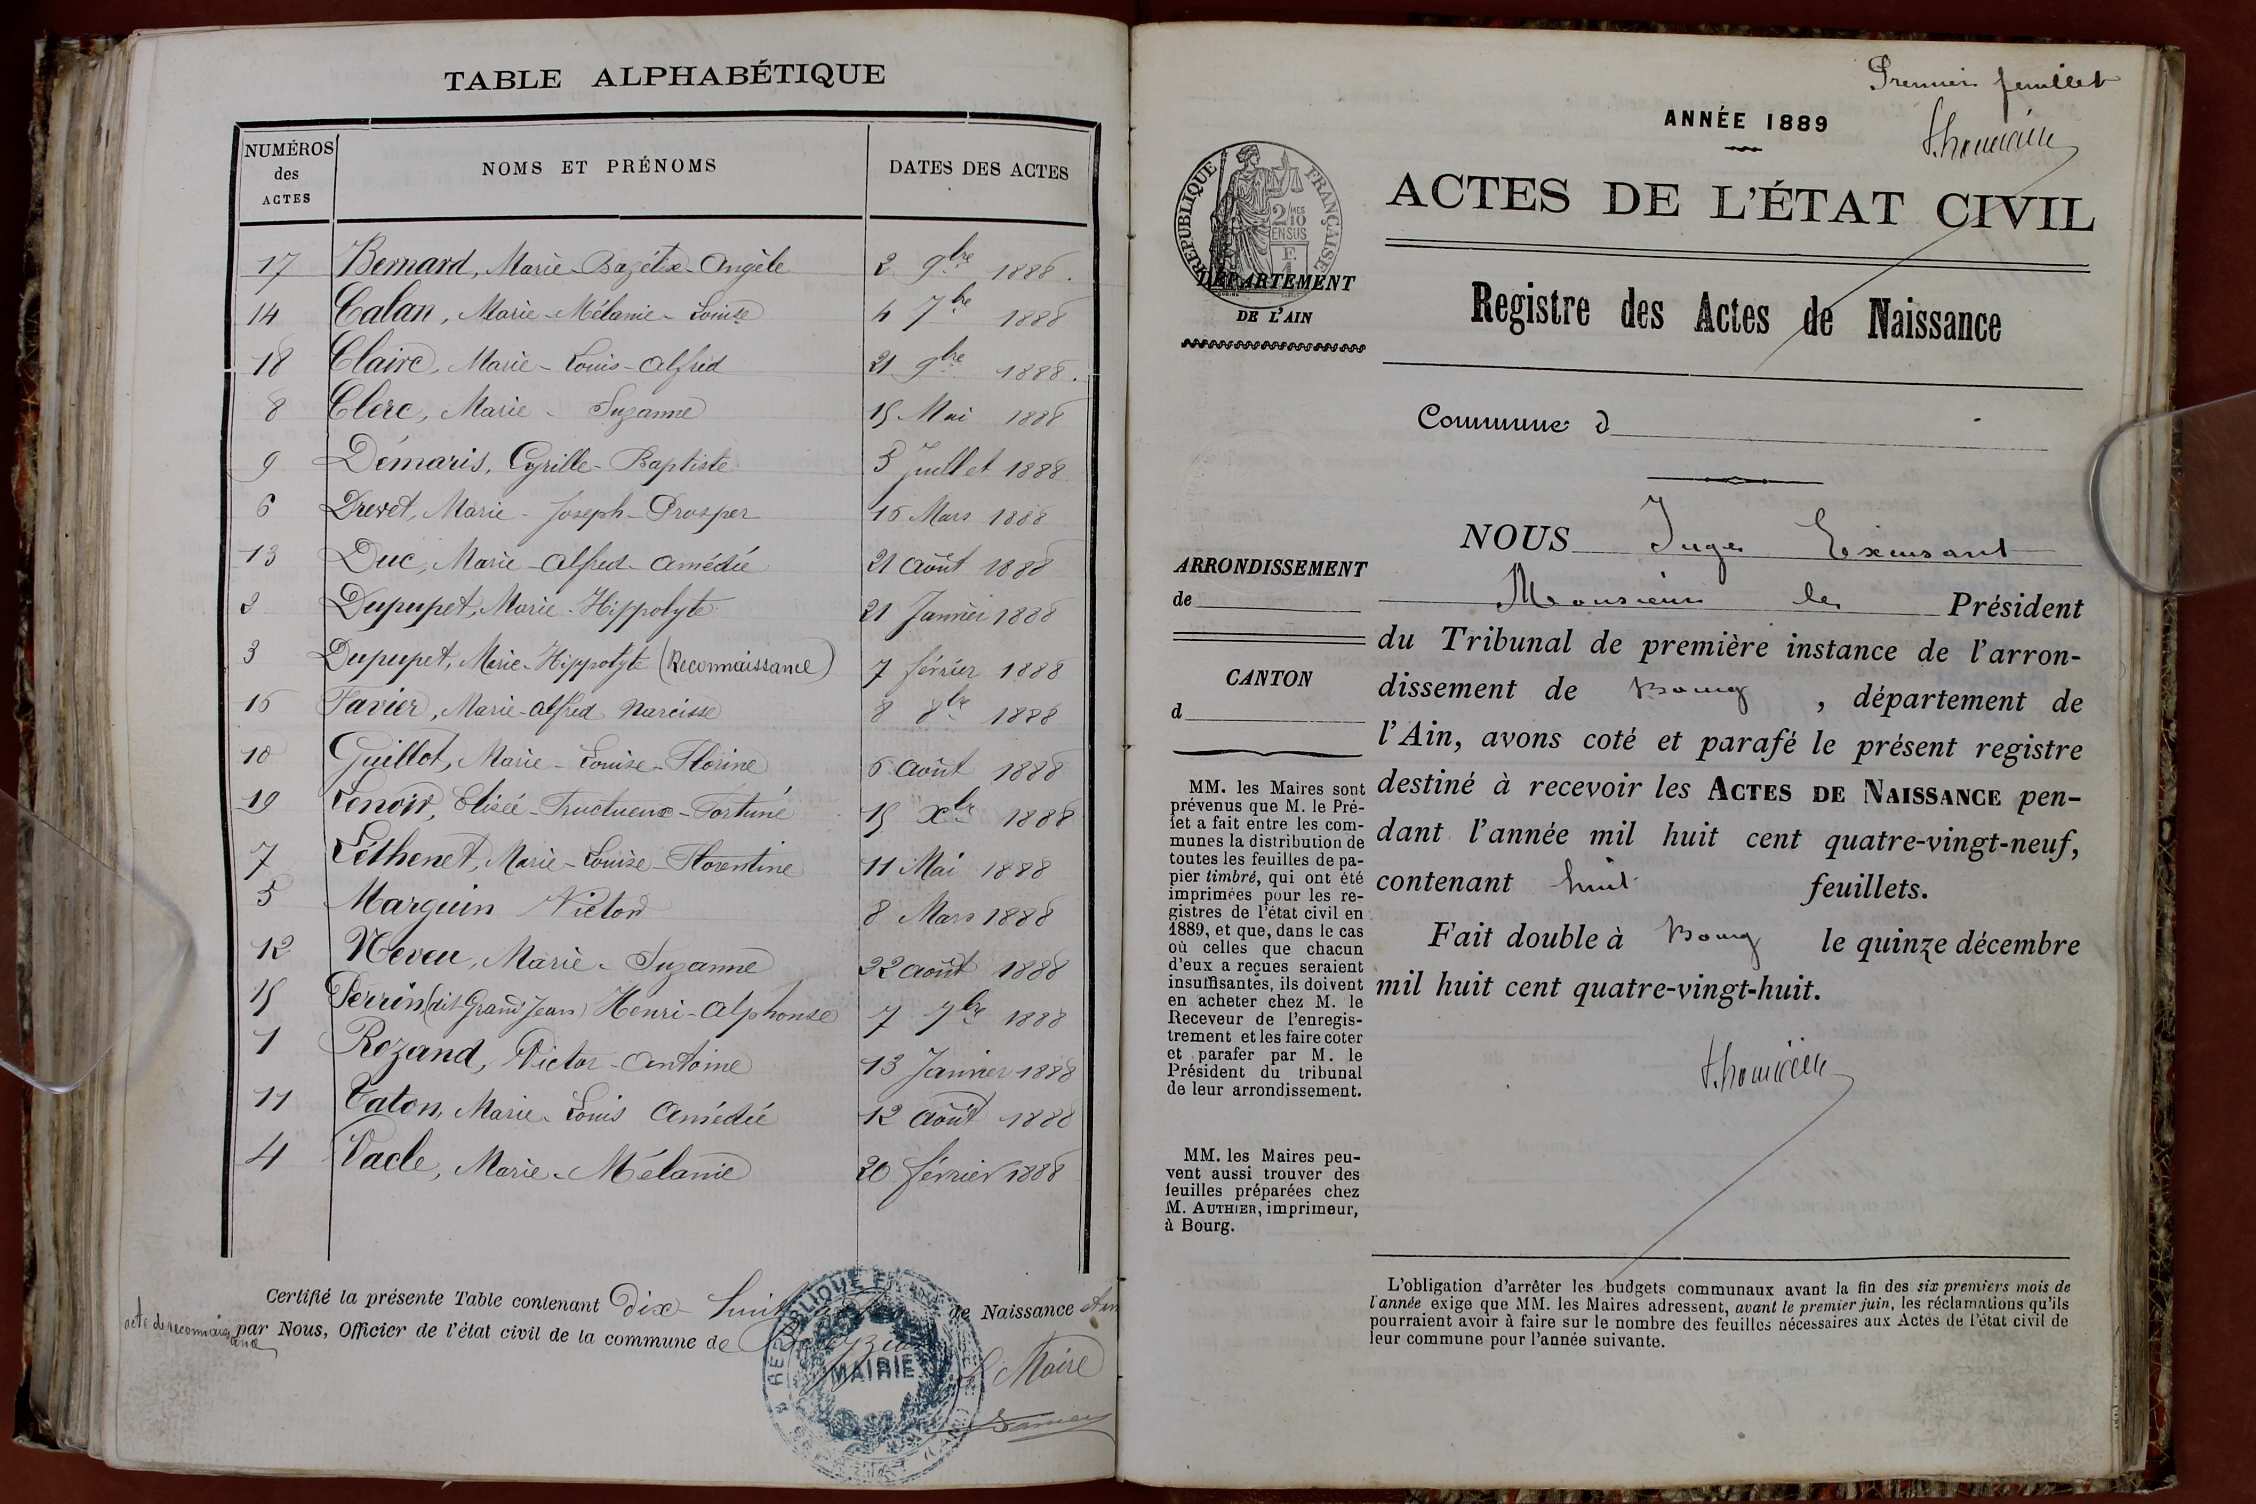 TABLE ALPHABÉTIQUE
NUMÉROS des ACTES
NOMS ET PRÉNOMS
DATES DES ACTES
17 Bernard, Marie- -Angèle 2 9bre 1888.
14 Calan, Marie-Mélanie-Louise 4 7bre 1888
18 Claire, Marie-Louis-Alfred 21 9bre 1888.
8 Clerc, Marie-Suzanne 15 Mai 1888
9 Démaris, Cyrille-Baptiste 5 Juillet 1888
6 Drevet, Marie-Joseph-Prosper 15 Mars 1888
13 Duc, Marie-Alfred-Amédée 21 Août 1888
2 Dupupet, Marie-Hippolyte 21 Janvier 1888
3 Dupupet, Marie-Hippolyte (Reconnaissance) 7 février 1888
16 Favier, Marie-Alfred Narcisse 8 8bre 1888
10 Guillot, Marie-Louise-Florine 6 Août 1888
19 Lenoir, Elisée-Fructueux-Fortuné 15 Xbre 1888
7 Léthenet, Marie-Louise-Florentine 11 Mai 1888
5 Marguin Victor 8 Mars 1888
12 Neveu, Marie-Suzanne 22 Août 1888
15 Perrin (dit Grand Jean) Henri-Alphonse 7 7bre 1888
1 Rozand, Victor-Antoine 13 Janvier 1888
11 Taton, Marie-Louis Amédée 12 Août 1888
4 Vacle, Marie-Mélanie 20 février 1888
Certifié la présente Table contenant Dix-huit de Naissance
acte de reconnaissance
par Nous, Officier de l'état civil de la commune de
RÉPUBLIQUE
MAIRIE
Le Maire
Premier feuillet
ANNÉE 1889
RÉPUBLIQUE FRANÇAISE
2/10 MES EN SUS
ACTES DE L'ÉTAT CIVIL
DÉPARTEMENT
DE L'AIN
Registre des Actes de Naissance
Commune d
ARRONDISSEMENT
de
CANTON
d
MM. les Maires sont
prévenus que M. le Pré-
fet a fait entre les com-
munes la distribution de
toutes les feuilles de pa-
pier timbré, qui ont été
imprimées pour les re-
gistres de l'état civil en
1889, et que, dans le cas
où celles que chacun
d'eux a reçues seraient
insuffisantes, ils doivent
en acheter chez M. le
Receveur de l'enregis-
trement et les faire coter
et parafer par M. le
Président du tribunal
de leur arrondissement.
MM. les Maires peu-
vent aussi trouver des
feuilles préparées chez
M. AUTHIER, imprimeur,
à Bourg.
NOUS Juge Excusant
Monsieur le Président
du Tribunal de première instance de l'arron-
dissement de Bourg, département de
l'Ain, avons coté et parafé le présent registre
destiné à recevoir les ACTES DE NAISSANCE pen-
dant l'année mil huit cent quatre-vingt-neuf,
contenant huit feuillets.
Fait double à Bourg le quinze décembre
mil huit cent quatre-vingt-huit.
L'obligation d'arrêter les budgets communaux avant la fin des six premiers mois de
l'année exige que MM. les Maires adressent, avant le premier juin, les réclamations qu'ils
pourraient avoir à faire sur le nombre des feuilles nécessaires aux Actes de l'état civil de
leur commune pour l'année suivante.